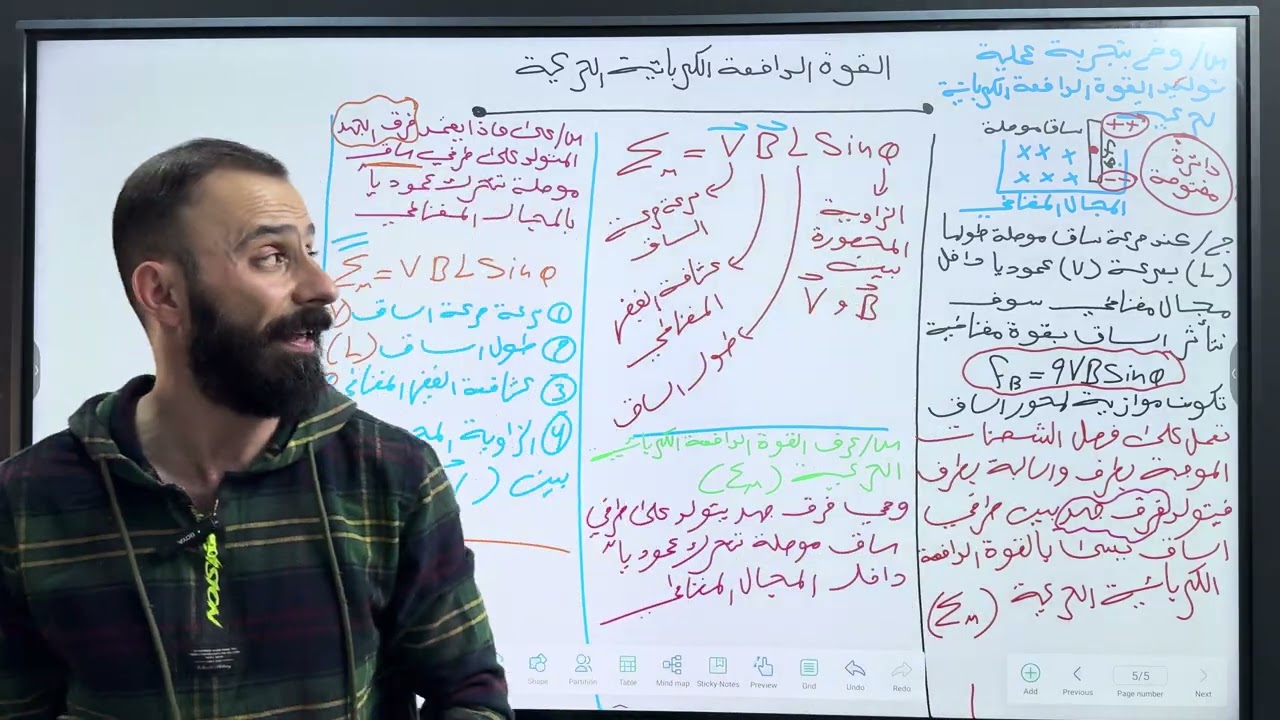 القوة الدافعة الكهربائية الحركية
س/ وضح بتجربة عملية
توليد القوة الدافعة الكهربائية
الحركية
ساق موصلة
++
--
× × ×
× × ×
دائرة
مفتوحة
المجال المغناطيسي
ج/ عند حركة ساق موصلة طولها
(L) بسرعة (V) عموديا داخل
مجال مغناطيسي سوف
تتأثر الساق بقوة مغناطيسية
F_B = qVB Sinθ
تكون موازية لمحور الساق
تعمل على فصل الشحنات
الموجبة بطرف والسالبة بطرف
فيتولد فرق جهد بين طرفي
الساق يسمى بالقوة الدافعة
الكهربائية الحركية (Ɛm)
Ɛm = V B L Sinθ
سرعة حركة
الساق
كثافة الفيض
المغناطيسي
طول الساق
الزاوية
المحصورة
بين
V و B
س/ عرف القوة الدافعة الكهربائية
الحركية (Ɛm)
وهي فرق جهد يتولد على طرفي
ساق موصلة تتحرك عموديا
داخل المجال المغناطيسي
س/ على ماذا يعتمد فرق الجهد
المتولد على طرفي ساق
موصلة تتحرك عموديا
بالمجال المغناطيسي
Ɛm = V B L Sinθ
① سرعة حركة الساق
② طول الساق (L)
③ كثافة الفيض
④ الزاوية
بين (
Shape
Partition
Table
Mind map
Sticky-Notes
Preview
Grid
Undo
Redo
Add
Previous
5/5
Page number
Next
BOYA